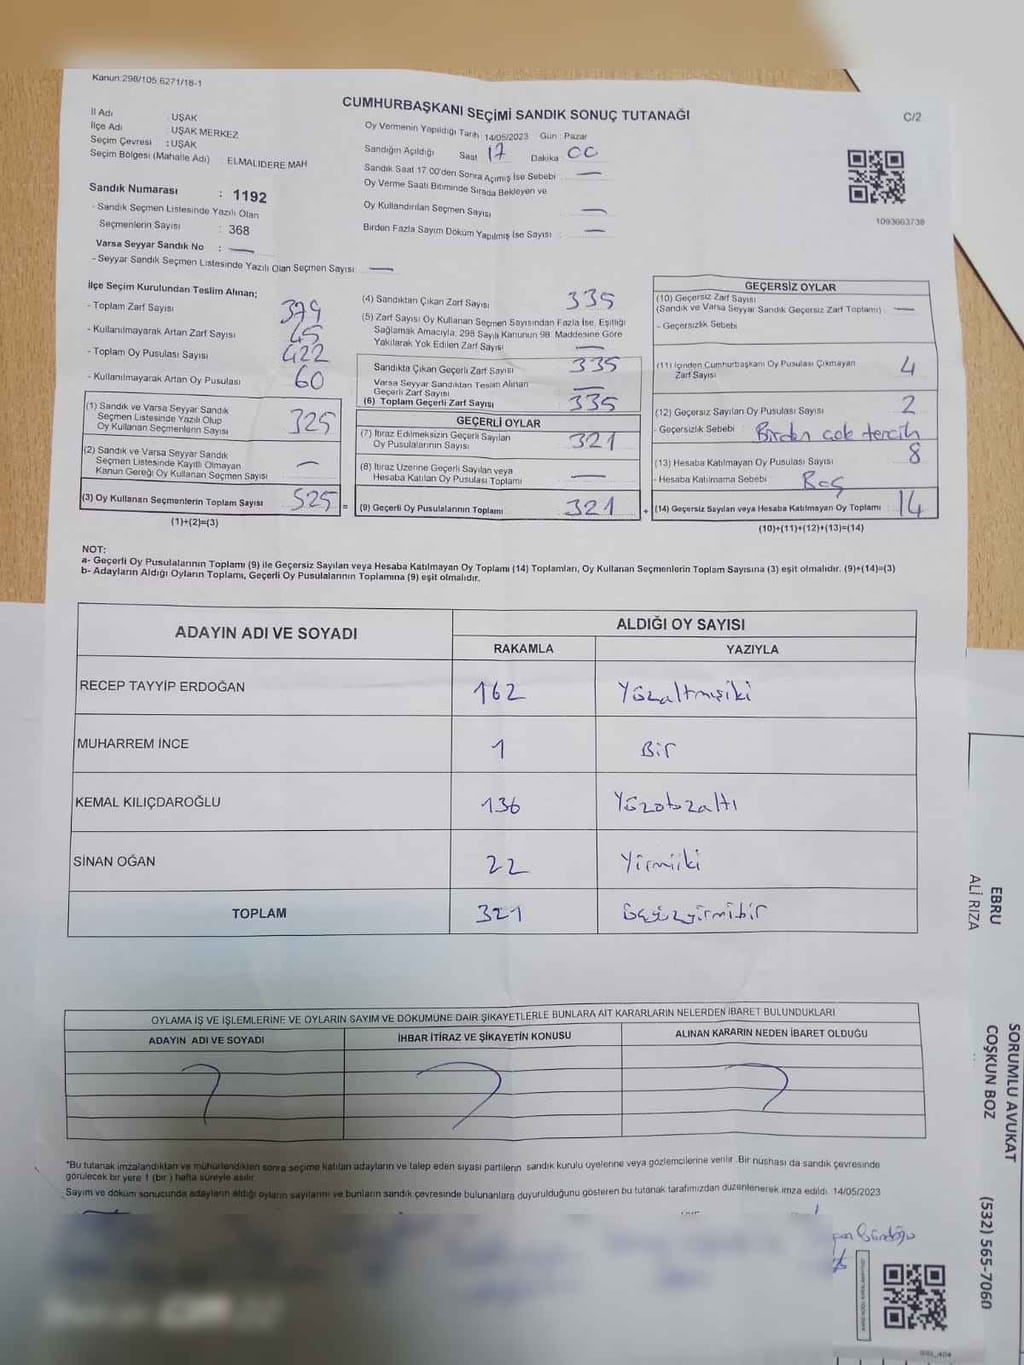 Kanun:298/105,6271/18-1
CUMHURBAŞKANI SEÇİMİ SANDIK SONUÇ TUTANAĞI
C/2
İl Adı : UŞAK
İlçe Adı : UŞAK MERKEZ
Seçim Çevresi : UŞAK
Seçim Bölgesi (Mahalle Adı) : ELMALIDERE MAH
Sandık Numarası : 1192
- Sandık Seçmen Listesinde Yazılı Olan
Seçmenlerin Sayısı : 368
Varsa Seyyar Sandık No : —
- Seyyar Sandık Seçmen Listesinde Yazılı Olan Seçmen Sayısı : —
Oy Vermenin Yapıldığı Tarih 14/05/2023 Gün : Pazar
Sandığın Açıldığı Saat 17 Dakika 00
Sandık Saat 17.00'den Sonra Açımış İse Sebebi —
Oy Verme Saati Bitiminde Sırada Bekleyen ve
Oy Kullandırılan Seçmen Sayısı —
Birden Fazla Sayım Döküm Yapılmış İse Sayısı : —
1093663738
İlçe Seçim Kurulundan Teslim Alınan;
- Toplam Zarf Sayısı 379
- Kullanılmayarak Artan Zarf Sayısı 45
- Toplam Oy Pusulası Sayısı 422
- Kullanılmayarak Artan Oy Pusulası 60
(1) Sandık ve Varsa Seyyar Sandık
Seçmen Listesinde Yazılı Olup
Oy Kullanan Seçmenlerin Sayısı 325
(2) Sandık ve Varsa Seyyar Sandık
Seçmen Listesinde Kayıtlı Olmayan
Kanun Gereği Oy Kullanan Seçmen Sayısı —
(3) Oy Kullanan Seçmenlerin Toplam Sayısı 525 =
(1)+(2)=(3)
(4) Sandıktan Çıkan Zarf Sayısı 335
(5) Zarf Sayısı Oy Kullanan Seçmen Sayısından Fazla İse, Eşitliği
Sağlamak Amacıyla, 298 Sayılı Kanunun 98. Maddesine Göre
Yakılarak Yok Edilen Zarf Sayısı —
Sandıkta Çıkan Geçerli Zarf Sayısı 335
Varsa Seyyar Sandıktan Teslim Alınan
Geçerli Zarf Sayısı —
(6) Toplam Geçerli Zarf Sayısı 335
GEÇERLİ OYLAR
(7) İtiraz Edilmeksizin Geçerli Sayılan
Oy Pusulalarının Sayısı 321
(8) İtiraz Üzerine Geçerli Sayılan veya
Hesaba Katılan Oy Pusulası Toplamı —
(9) Geçerli Oy Pusulalarının Toplamı 321 +
GEÇERSİZ OYLAR
(10) Geçersiz Zarf Sayısı
(Sandık ve Varsa Seyyar Sandık Geçersiz Zarf Toplamı) —
- Geçersizlik Sebebi
(11) İçinden Cumhurbaşkanı Oy Pusulası Çıkmayan
Zarf Sayısı 4
(12) Geçersiz Sayılan Oy Pusulası Sayısı 2
- Geçersizlik Sebebi Birden çok tercih
(13) Hesaba Katılmayan Oy Pusulası Sayısı 8
- Hesaba Katılmama Sebebi Boş
(14) Geçersiz Sayılan veya Hesaba Katılmayan Oy Toplamı 14
(10)+(11)+(12)+(13)=(14)
NOT:
a- Geçerli Oy Pusulalarının Toplamı (9) ile Geçersiz Sayılan veya Hesaba Katılmayan Oy Toplamı (14) Toplamları, Oy Kullanan Seçmenlerin Toplam Sayısına (3) eşit olmalıdır. (9)+(14)=(3)
b- Adayların Aldığı Oyların Toplamı, Geçerli Oy Pusulalarının Toplamına (9) eşit olmalıdır.
ADAYIN ADI VE SOYADI
ALDIĞI OY SAYISI
RAKAMLA YAZIYLA
RECEP TAYYİP ERDOĞAN 162 Yüzaltmışiki
MUHARREM İNCE 1 Bir
KEMAL KILIÇDAROĞLU 136 Yüzotuzaltı
SİNAN OĞAN 22 Yirmiiki
TOPLAM 321 üçyüzyirmibir
OYLAMA İŞ VE İŞLEMLERİNE VE OYLARIN SAYIM VE DÖKÜMÜNE DAİR ŞİKAYETLERLE BUNLARA AİT KARARLARIN NELERDEN İBARET BULUNDUKLARI
ADAYIN ADI VE SOYADI İHBAR İTİRAZ VE ŞİKAYETİN KONUSU ALINAN KARARIN NEDEN İBARET OLDUĞU
*Bu tutanak imzalandıktan ve mühürlendikten sonra seçime katılan adayların ve talep eden siyasi partilerin sandık kurulu üyelerine veya gözlemcilerine verilir. Bir nüshası da sandık çevresinde
görülecek bir yere 1 (bir) hafta süreyle asılır.
Sayım ve döküm sonucunda adayların aldığı oyların sayılarını ve bunların sandık çevresinde bulunanlara duyurulduğunu gösteren bu tutanak tarafımızdan düzenlenerek imza edildi. 14/05/2023
EBRU
ALİ RIZA
SORUMLU AVUKAT
COŞKUN BOZ
(532) 565-7060